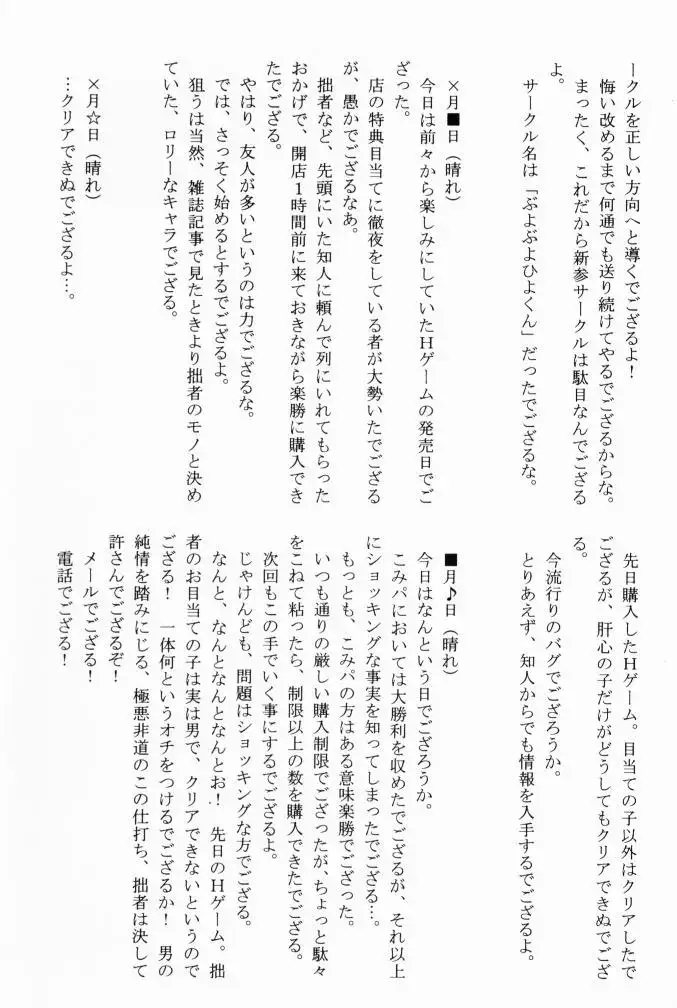 ークルを正しい方向へと導くでござるよ！
悔い改めるまで何通でも送り続けてやるでござるからな。
まったく、これだから新参サークルは駄目なんでござる
よ。
サークル名は「ぷよぷよひよくん」だったでござるな。
×月■日（晴れ）
今日は前々から楽しみにしていたＨゲームの発売日でご
ざった。
店の特典目当てに徹夜をしている者が大勢いたでござる
が、愚かでござるなあ。
拙者など、先頭にいた知人に頼んで列にいれてもらった
おかげで、開店１時間前に来ておきながら楽勝に購入でき
たでござる。
やはり、友人が多いというのは力でござるな。
では、さっそく始めるとするでござるよ。
狙うは当然、雑誌記事で見たときより拙者のモノと決め
ていた、ロリーなキャラでござる。
×月☆日（晴れ）
…クリアできぬでござるよ…。
先日購入したＨゲーム。目当ての子以外はクリアしたで
ござるが、肝心の子だけがどうしてもクリアできぬでござ
る。
今流行りのバグでござろうか。
とりあえず、知人からでも情報を入手するでござるよ。
■月♪日（晴れ）
今日はなんという日でござろうか。
こみパにおいては大勝利を収めたでござるが、それ以上
にショッキングな事実を知ってしまったでござる…。
もっとも、こみパの方はある意味楽勝でござった。
いつも通りの厳しい購入制限でござったが、ちょっと駄々
をこねて粘ったら、制限以上の数を購入できたでござる。
次回もこの手でいく事にするでござるよ。
じゃけんども、問題はショッキングな方でござる。
なんと、なんとなんとなんとお！　先日のＨゲーム。拙
者のお目当ての子は実は男で、クリアできないというので
ござる！　一体何というオチをつけるでござるか！　男の
純情を踏みにじる、極悪非道のこの仕打ち、拙者は決して
許さんでござるぞ！
メールでござる！
電話でござる！